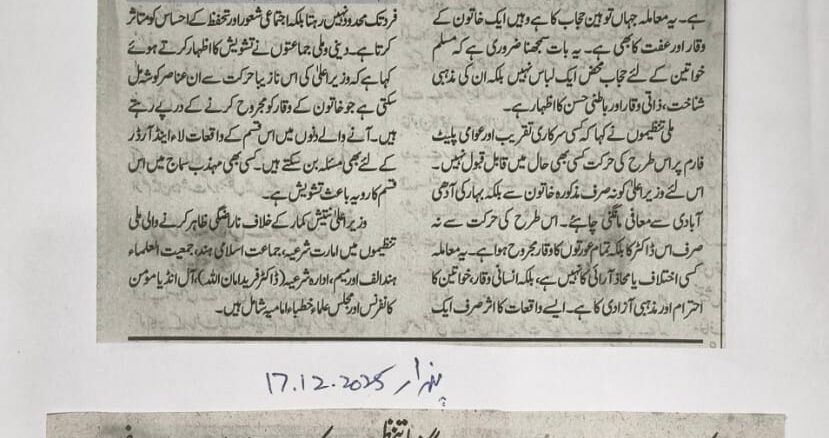 ہے۔ یہ معاملہ جہاں توہین حجاب کا ہے وہیں ایک خاتون کے
وقار اور عفت کا بھی ہے۔ یہ بات سمجھنا ضروری ہے کہ مسلم
خواتین کے لئے حجاب محض ایک لباس نہیں بلکہ ان کی مذہبی
شناخت، ذاتی وقار اور باطنی حسن کا اظہار ہے۔
ملی تنظیموں نے کہا کہ کسی سرکاری تقریب اور عوامی پلیٹ
فارم پر اس طرح کی حرکت کسی بھی حال میں قابل قبول نہیں۔
اس لئے وزیر اعلیٰ کو نہ صرف مذکورہ خاتون سے بلکہ بہار کی آدھی
آبادی سے معافی مانگنی چاہئے۔ اس طرح کی حرکت سے نہ
صرف اس ڈاکٹر کا بلکہ تمام عورتوں کا وقار مجروح ہوا ہے۔ یہ معاملہ
کسی اختلاف یا محاذ آرائی کا نہیں ہے، بلکہ انسانی وقار، خواتین کا
احترام اور مذہبی آزادی کا ہے۔ ایسے واقعات کا اثر صرف ایک
فرد تک محدود نہیں رہتا بلکہ اجتماعی شعور اور تحفظ کے احساس کو متاثر
کرتا ہے۔ دینی و ملی جماعتوں نے تشویش کا اظہار کرتے ہوئے
کہا ہے کہ وزیر اعلیٰ کی اس نازیبا حرکت سے ان عناصر کو شہ مل
سکتی ہے جو خاتون کے وقار کو مجروح کرنے کے در پے رہتے
ہیں۔ آنے والے دنوں میں اس قسم کے واقعات لاء اینڈ آرڈر
کے لئے بھی مسئلہ بن سکتے ہیں۔ کسی بھی مہذب سماج میں اس
قسم کا رویہ باعث تشویش ہے۔
وزیر اعلیٰ نتیش کمار کے خلاف ناراضگی ظاہر کرنے والی ملی
تنظیموں میں امارت شرعیہ، جماعت اسلامی ہند، جمعیت العلماء
ہند الف اور میم، ادارہ شرعیہ (ڈاکٹر فرید امان اللہ)، آل انڈیا مؤمن
کانفرنس اور مجلس علماء خطباء امامیہ شامل ہیں۔
پندار 17.12.2025